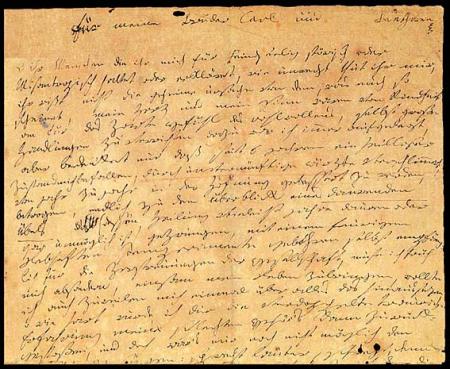 für meine Brüder Carl und Beethoven
O ihr Menschen die ihr mich für feindseelig störisch oder
Misantropisch haltet oder erkläret, wie unrecht thut ihr mir,
ihr wißt nicht die geheime urßache von dem, was euch so
scheinet, mein Herz und mein Sinn waren von Kindheit
an für das Zarte Gefühl des wohlwollens, selbst große
Handlungen zu verrichten dazu war ich immer aufgelegt,
aber bedenket nur daß seit 6 jahren ein heilloser
Zustand mich befallen, durch unvernünftige ärzte verschlimmert,
von jahr zu jahr in der Hofnung gebessert zu werden,
betrogen, endlich zu dem überblick eines daurenden
Übels dessen Heilung vieleicht jahre dauren oder
gar unmöglich ist gezwungen, mit einem feurigen
Lebhaften Temperamente gebohren selbst empfäng-
lich für die Zerstreuungen der Gesellschaft, muste ich früh
mich absondern, einsam mein Leben zubringen, wollte
ich auch zuweilen mich einmal über alles das hinaussezen,
o wie hart wurde ich die verdoppelte traurige
Erfahrung meines schlechten Gehör's dann zurück-
gestoßen, und doch war's mir noch nicht möglich den
sprecht lauter, denn